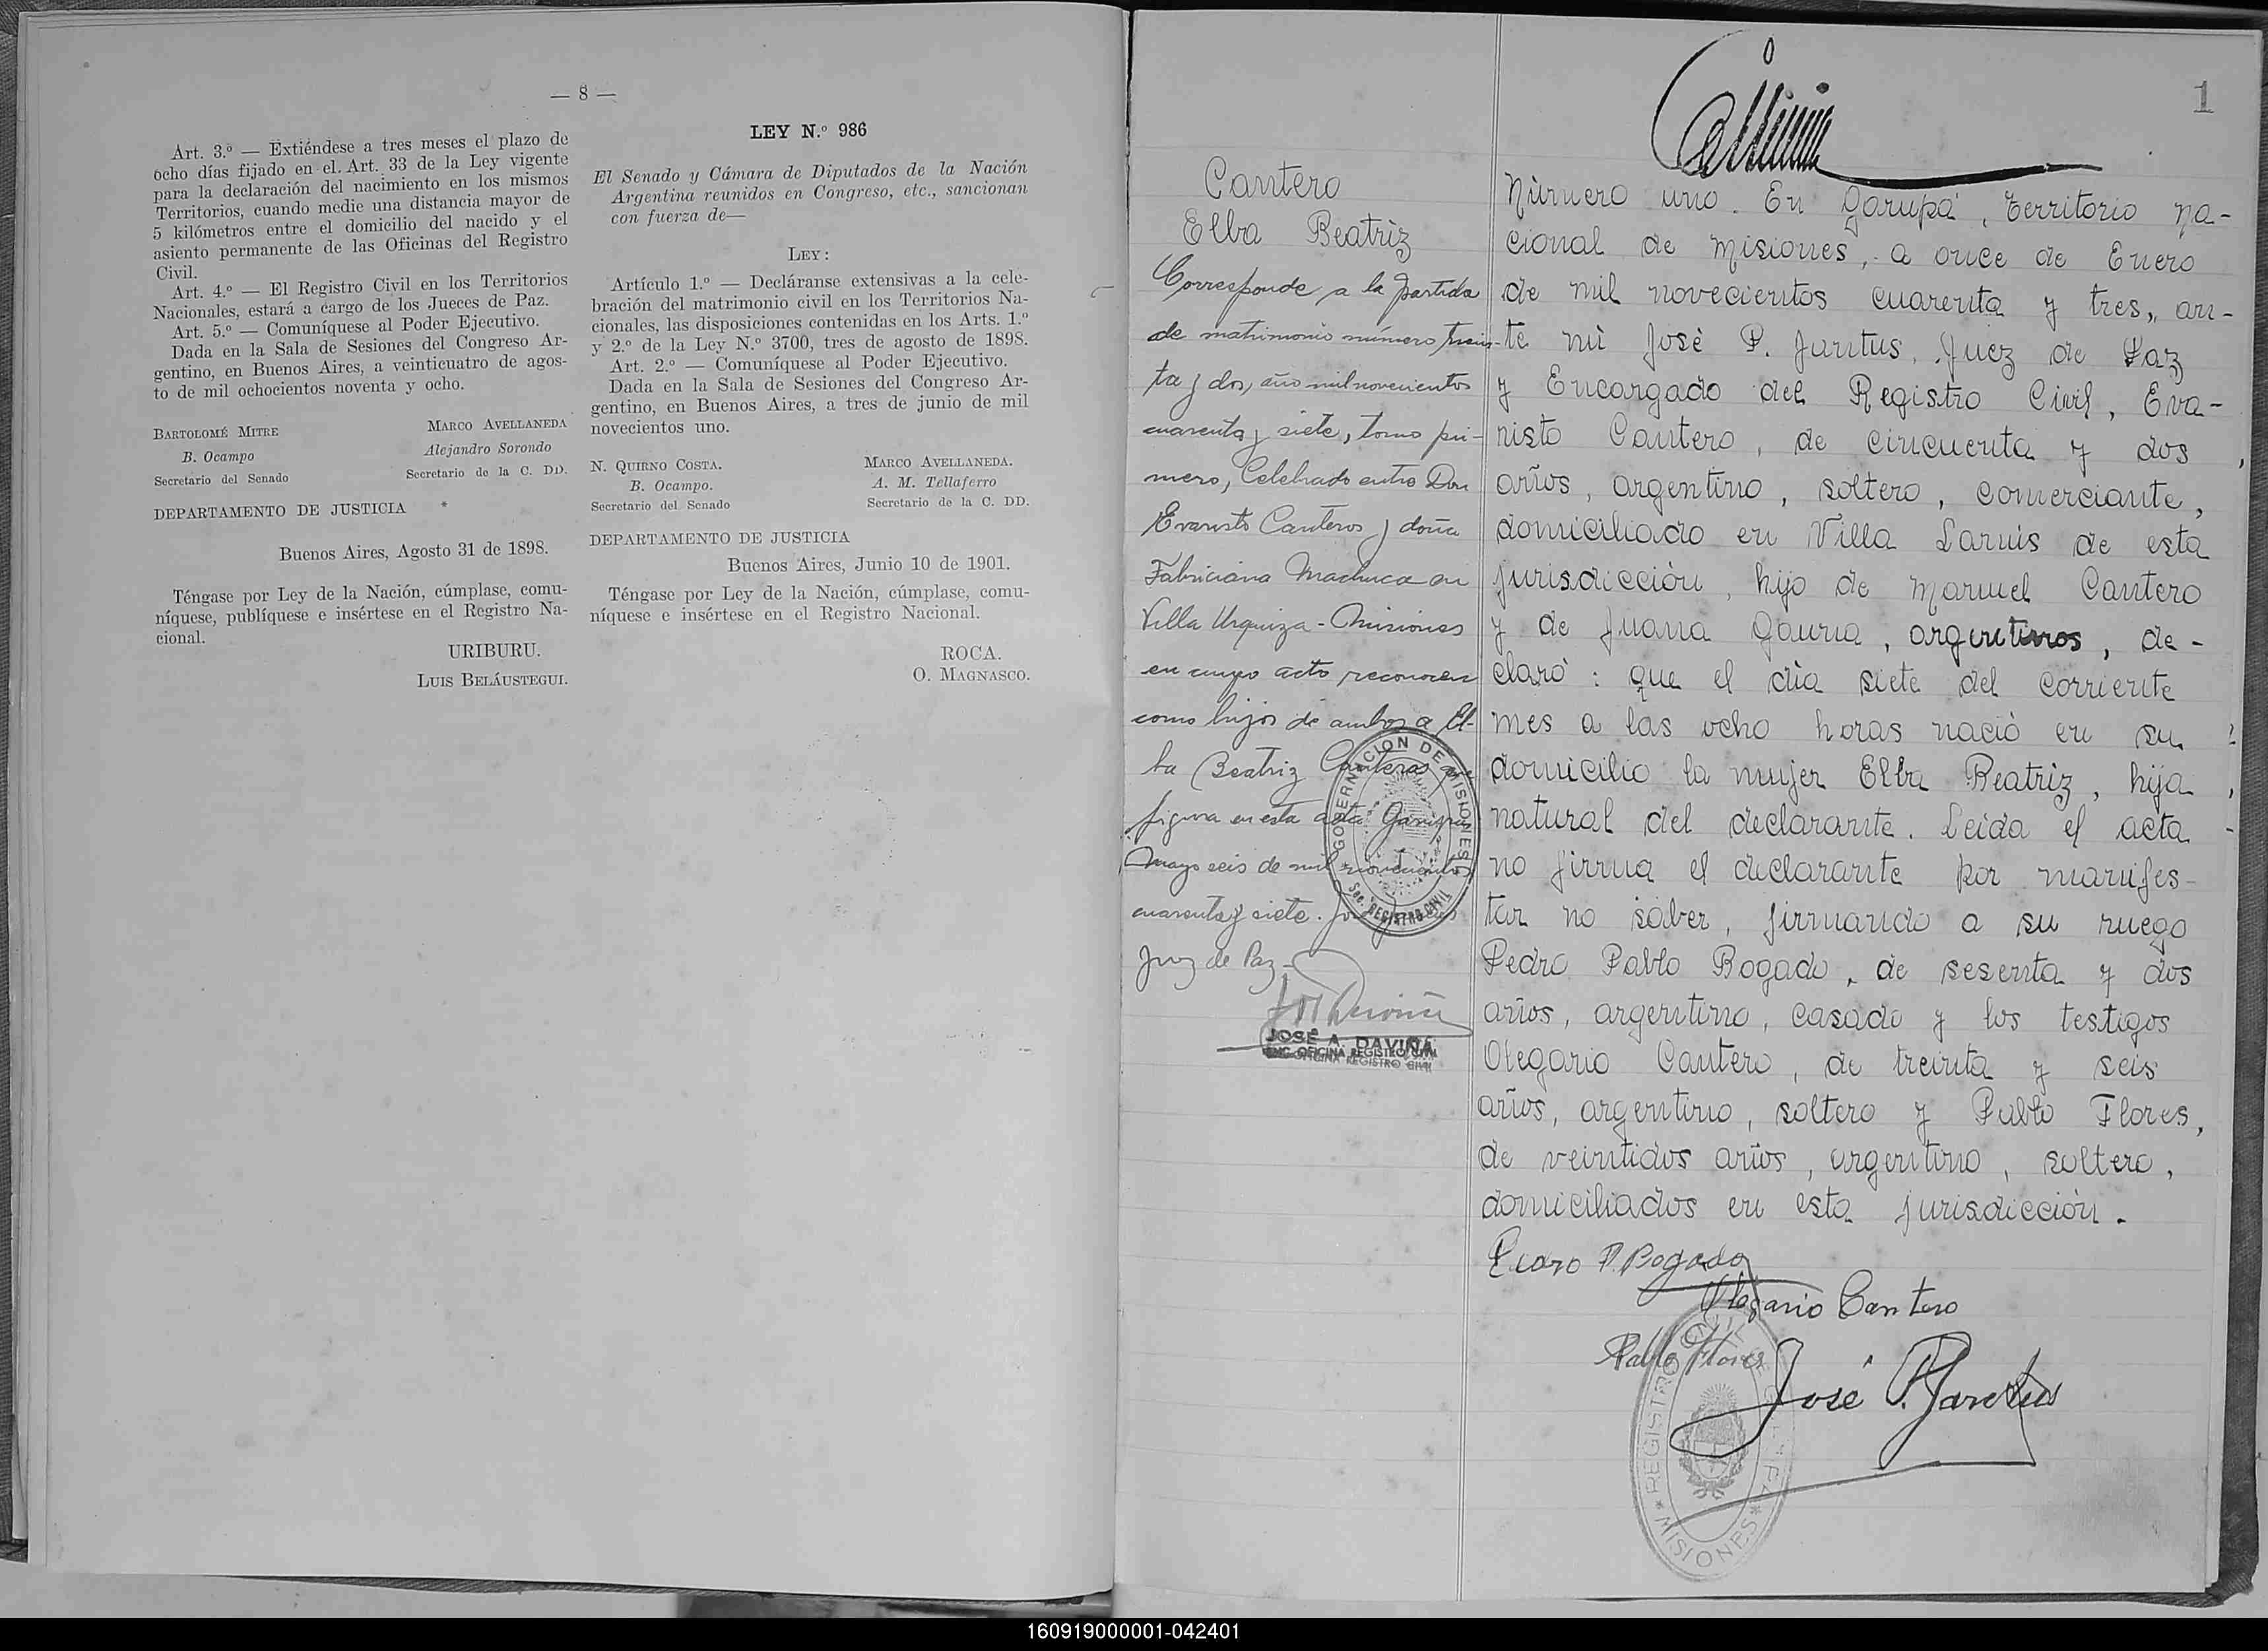 — 8 —
Art. 3.º — Extiéndese a tres meses el plazo de
ocho días fijado en el. Art. 33 de la Ley vigente
para la declaración del nacimiento en los mismos
Territorios, cuando medie una distancia mayor de
5 kilómetros entre el domicilio del nacido y el
asiento permanente de las Oficinas del Registro
Civil.
Art. 4.º — El Registro Civil en los Territorios
Nacionales, estará a cargo de los Jueces de Paz.
Art. 5.º — Comuníquese al Poder Ejecutivo.
Dada en la Sala de Sesiones del Congreso Ar-
gentino, en Buenos Aires, a veinticuatro de agos-
to de mil ochocientos noventa y ocho.
BARTOLOMÉ MITRE MARCO AVELLANEDA
B. Ocampo Alejandro Sorondo
Secretario del Senado Secretario de la C. DD.
DEPARTAMENTO DE JUSTICIA
Buenos Aires, Agosto 31 de 1898.
Téngase por Ley de la Nación, cúmplase, comu-
níquese, publíquese e insértese en el Registro Na-
cional.
URIBURU.
LUIS BELÁUSTEGUI.
LEY N.º 986
El Senado y Cámara de Diputados de la Nación
Argentina reunidos en Congreso, etc., sancionan
con fuerza de—
LEY:
Artículo 1.º — Decláranse extensivas a la cele-
bración del matrimonio civil en los Territorios Na-
cionales, las disposiciones contenidas en los Arts. 1.º
y 2.º de la Ley N.º 3700, tres de agosto de 1898.
Art. 2.º — Comuníquese al Poder Ejecutivo.
Dada en la Sala de Sesiones del Congreso Ar-
gentino, en Buenos Aires, a tres de junio de mil
novecientos uno.
N. QUIRNO COSTA. MARCO AVELLANEDA.
B. Ocampo. A. M. Tellaferro
Secretario del Senado Secretario de la C. DD.
DEPARTAMENTO DE JUSTICIA
Buenos Aires, Junio 10 de 1901.
Téngase por Ley de la Nación, cúmplase, comu-
níquese e insértese en el Registro Nacional.
ROCA.
O. MAGNASCO.
1
Cantero
Elba Beatriz
Corresponde a la partida
de matrimonio número trein-
ta y dos, año mil novecientos
cuarenta y siete, tomo pri-
mero, Celebrado entre Don
Evaristo Canteros y doña
Fabriciana Machuca en
Villa Urquiza - Misiones
en cuyo acto reconocen
como hijos de ambos a El-
ba Beatriz Canteros que
figura en esta acta Garupá
Mayo seis de mil novecientos
cuarenta y siete.
Juez de Paz -
GOBERNACION DE MISIONES
Sec. REGISTRO CIVIL
JOSÉ A. DAVIÑA
ENC. OFICINA REGISTRO CIVIL
Número uno. En Garupá, territorio na-
cional de Misiones, a once de Enero
de mil novecientos cuarenta y tres, an-
te mi José P. Jantus, Juez de Paz
y Encargado del Registro Civil, Eva-
risto Cantero, de cincuenta y dos
años, argentino, soltero, comerciante,
domiciliado en Villa Lanús de esta
jurisdicción, hijo de Manuel Cantero
y de Juana Gauna, argentinos, de-
claró: que el día siete del corriente
mes a las ocho horas nació en su
domicilio la mujer Elba Beatriz, hija
natural del declarante. Leida el acta
no firma el declarante por manifes-
tar no saber, firmando a su ruego
Pedro Pablo Bogado, de sesenta y dos
años, argentino, casado y los testigos
Olegario Cantero, de treinta y seis
años, argentino, soltero y Pablo Flores,
de veintidos años, argentino, soltero,
domiciliados en esta jurisdicción.
Pedro P. Bogado
Olegario Cantero
Pablo Flores
José P. Jantus
REGISTRO CIVIL
MISIONES
160919000001-042401